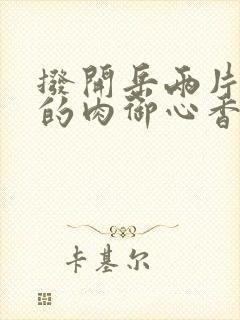 撥開岳兩片
的肉御心香
卡基尔